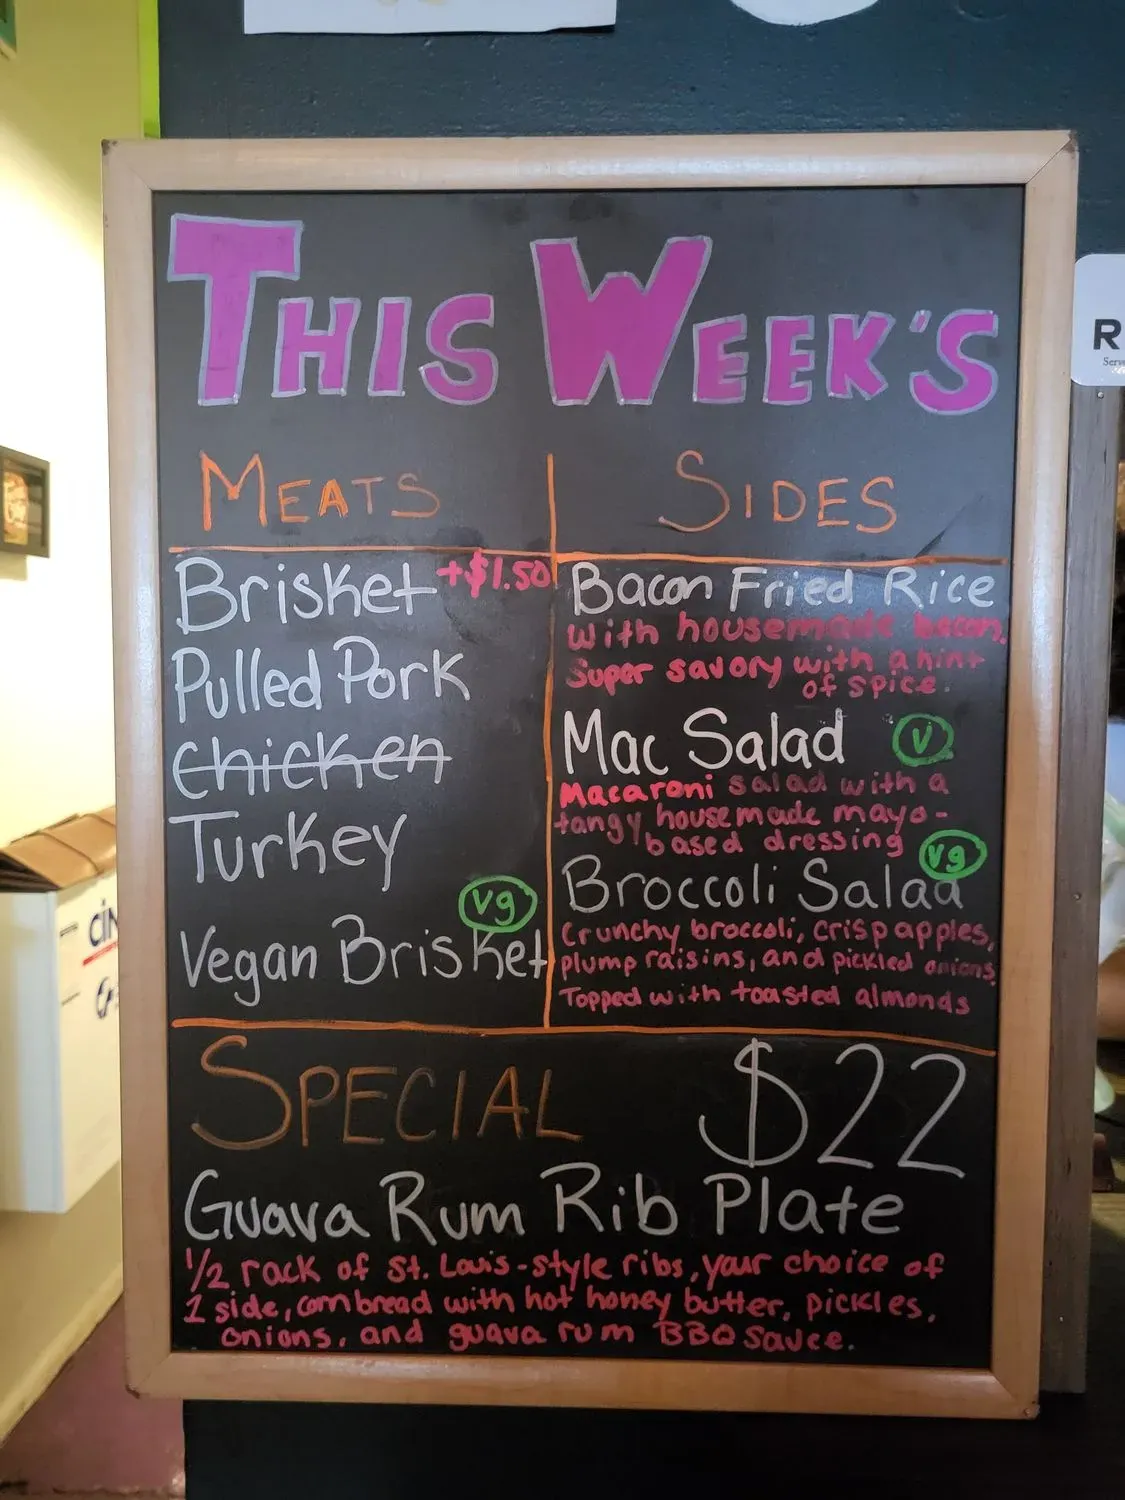 THIS WEEK'S
MEATS
Brisket +$1.50
Pulled Pork
chicken
Turkey
vg
Vegan Brisket
SIDES
Bacon Fried Rice
with housemade bacon.
Super savory with a hint
of spice.
Mac Salad V
Macaroni salad with a
tangy housemade mayo-
based dressing
vg
Broccoli Salad
Crunchy broccoli, crisp apples,
plump raisins, and pickled onions
Topped with toasted almonds
SPECIAL $22
Guava Rum Rib Plate
1/2 rack of St. Louis-style ribs, your choice of
1 side, cornbread with hot honey butter, pickles,
onions, and guava rum BBQ sauce.
R